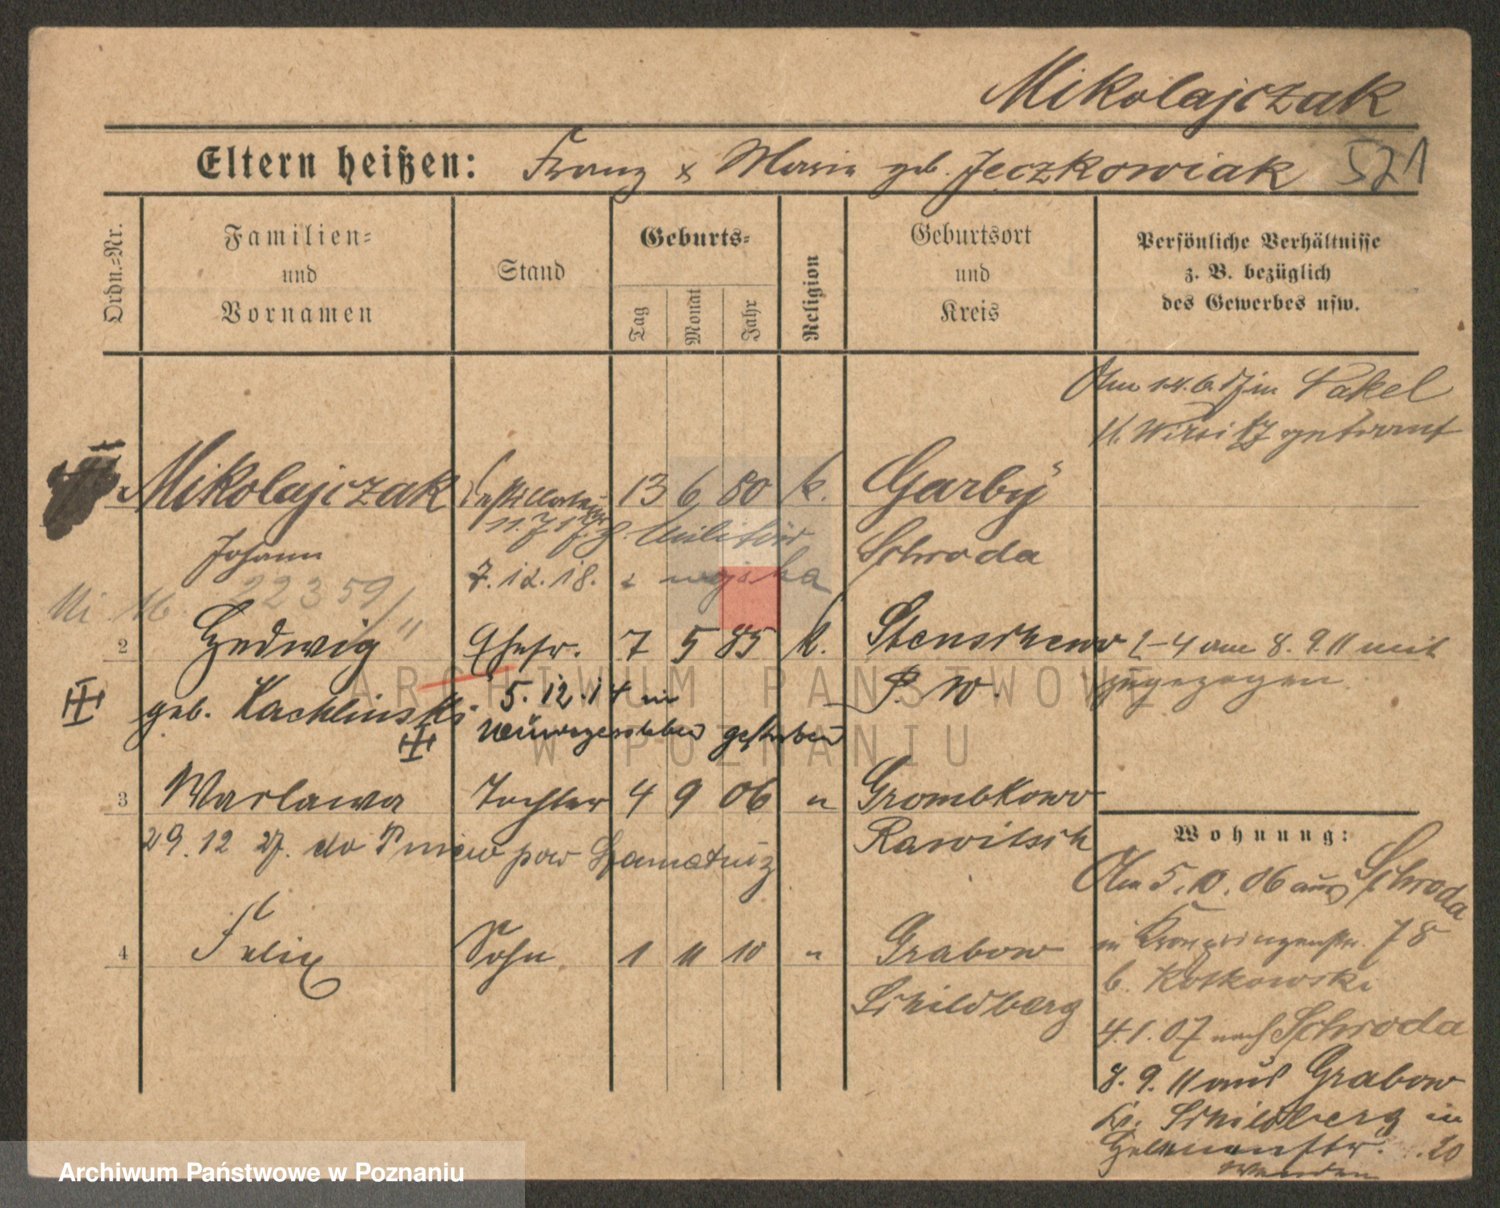 Mikolajczak
Eltern heißen: Franz & Maria geb. Jeczkowiak 521
Ordn.=Nr.
Familien=
und
Vornamen
Stand
Geburts=
Tag
Monat
Jahr
Religion
Geburtsort
und
Kreis
Persönliche Verhältnisse
z. B. bezüglich
des Gewerbes usw.
Am 14.6.17 in Nakel
K. Wirsitz getraut
Mikolajczak 13 6 80 k. Garby
11.7.17 z. Militär
Johann Schroda
7.12.18. z wojska
22359/
2 Hedwig " Ehefr. 7 5 85 k. Stenschewo 1-4 am 8.9.11 mit
geb. Kachlinski P. W. zugezogen
5.12.14 in
gestorben
3 Warlawa Tochter 4 9 06 " Grombkowo
29.12 27. do Pniew pow Szamotuly Rawitsch
Wohnung:
Am 5.10.06 aus Schroda
in Kronprinzenstr. 78
b. Kotkowski
4 Felix Sohn 1 11 10 " Grabow
Schildberg
4.1.07 nach Schroda
8.9.11 aus Grabow
Kr. Schildberg in
20
ARCHIWUM PAŃSTWOWE
W POZNANIU
Archiwum Państwowe w Poznaniu